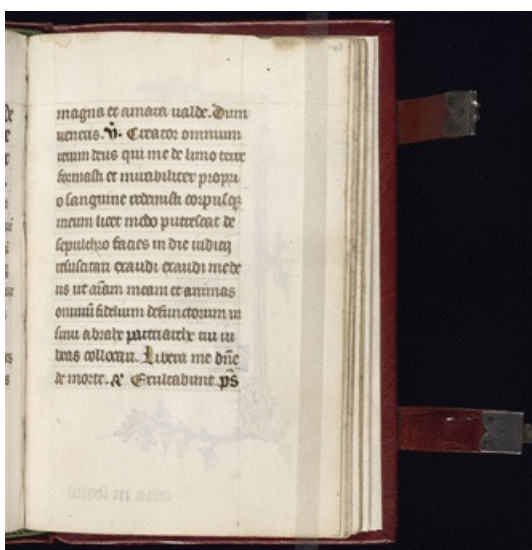 magna et amara ualde. Dum
ueneris. V. Creator omnium
rerum deus qui me de limo terre
formasti et mirabiliter propri
o sanguine redemisti corpusqz
meum licet modo putrescat de
sepulchro facies in die iudicij
resuscitari exaudi exaudi me de
us ut aīam meam et animas
omniū fidelium defunctorum in
sinu abrahe patriarche tui iu
beas collocari. Libera me dn̄e
de morte. & Exultabunt. ps̄